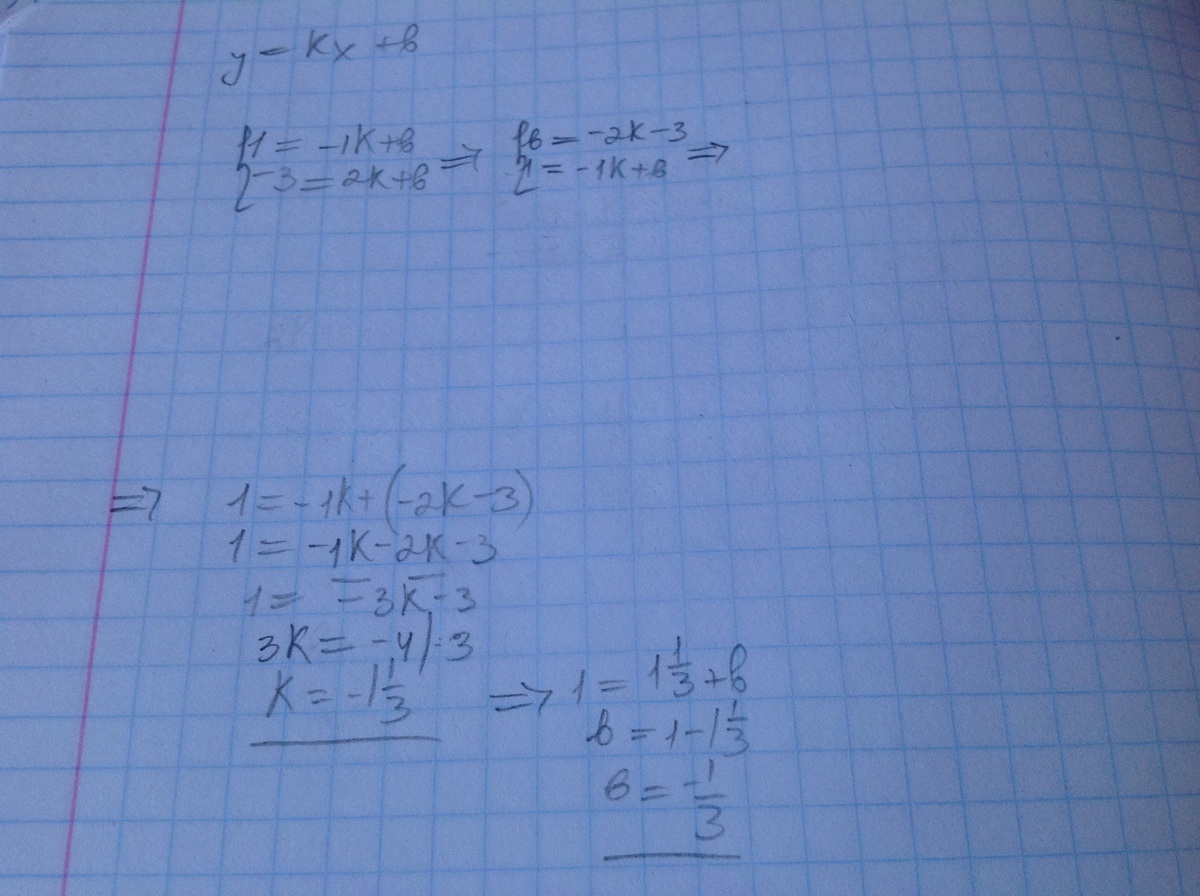 y = kx + в
{1 = -1k+в => {в = -2k-3 =>
{-3 = 2k+в {1 = -1k+в
=> 1 = -1k+(-2k-3)
1 = -1k-2k-3
1 = -3k-3
3k = -4):3
k = -1 1/3 => 1 = 1 1/3 + в
в = 1-1 1/3
в = -1/3